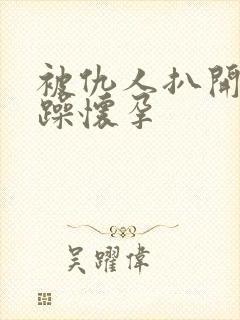 被仇人扒開
躁懷孕
吴躍偉